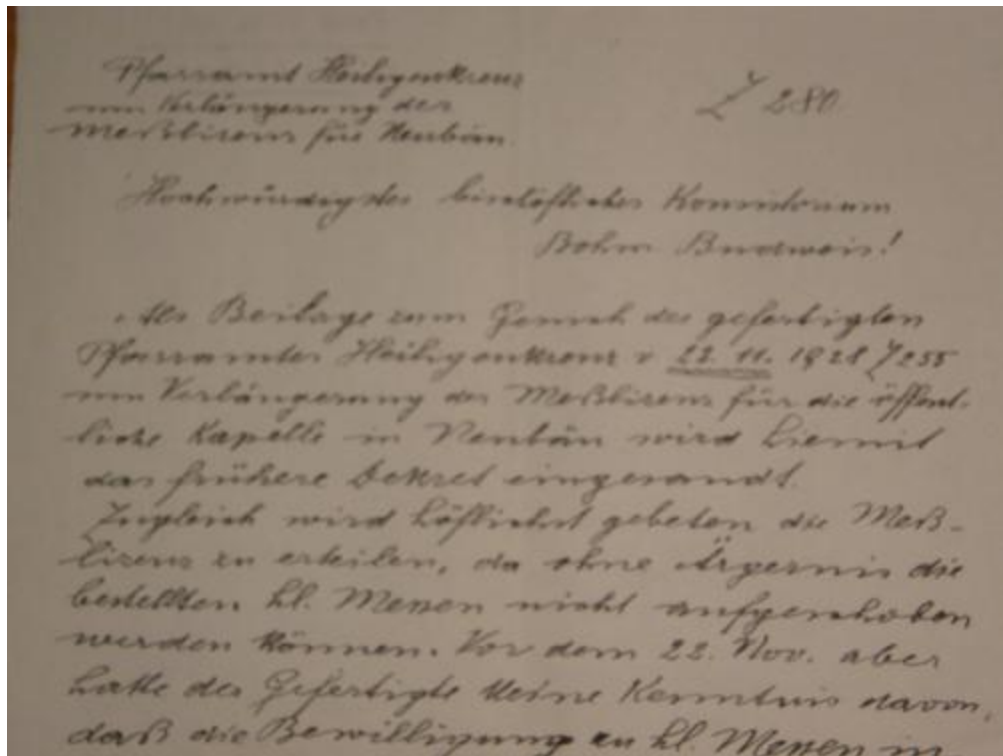 Pfarramt Heiligenkreuz
um Verlängerung der
Meßlizenz für Neubäu.
Z 280
Hochwürdigstes bischöfliches Konsistorium
Böhm. Budweis!
Als Beilage zum Gesuch des gefertigten
Pfarramtes Heiligenkreuz v 22. 11. 1928 Z 255
um Verlängerung der Meßlizenz für die öffent-
liche Kapelle in Neubäu wird hiemit
das frühere Dekret eingesandt.
Zugleich wird höflichst gebeten die Meß-
lizenz zu erteilen, da ohne Ärgernis die
bestellten hl. Messen nicht aufgeschoben
werden können. Vor dem 22. Nov. aber
hatte der Gefertigte keine Kenntnis davon,
daß die Bewilligung zu hl. Messen in